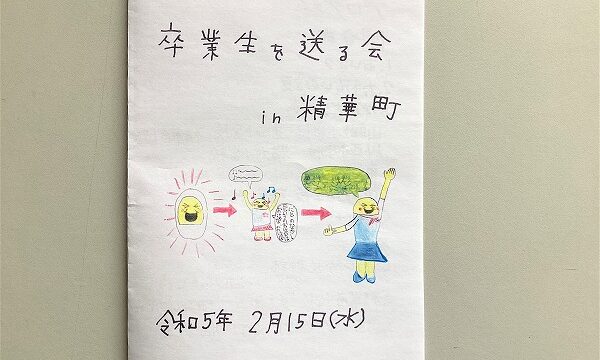 卒業生を送る会
in 精華町
令和5年 2月15日(水)